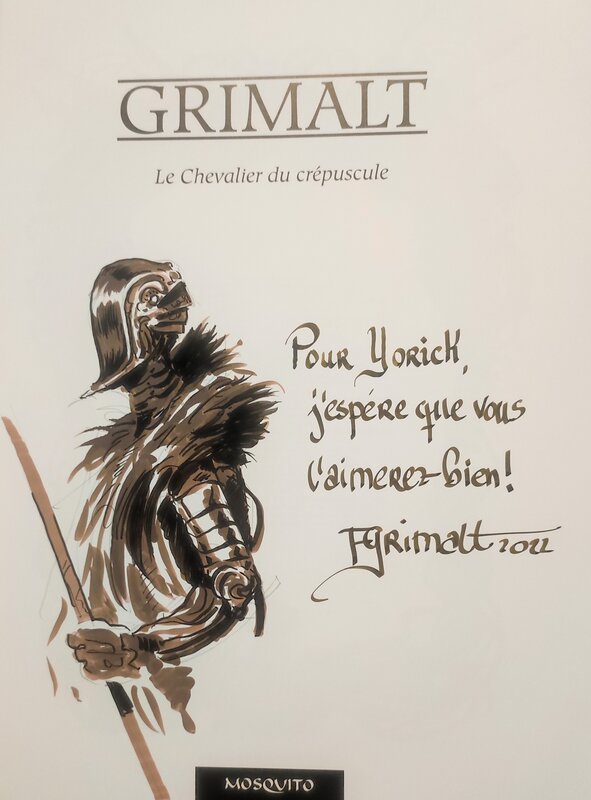 GRIMALT
Le Chevalier du crépuscule
Pour Yorick,
j'espére que vous
l'aimerez-bien!
FGrimalt 2022
MOSQUITO